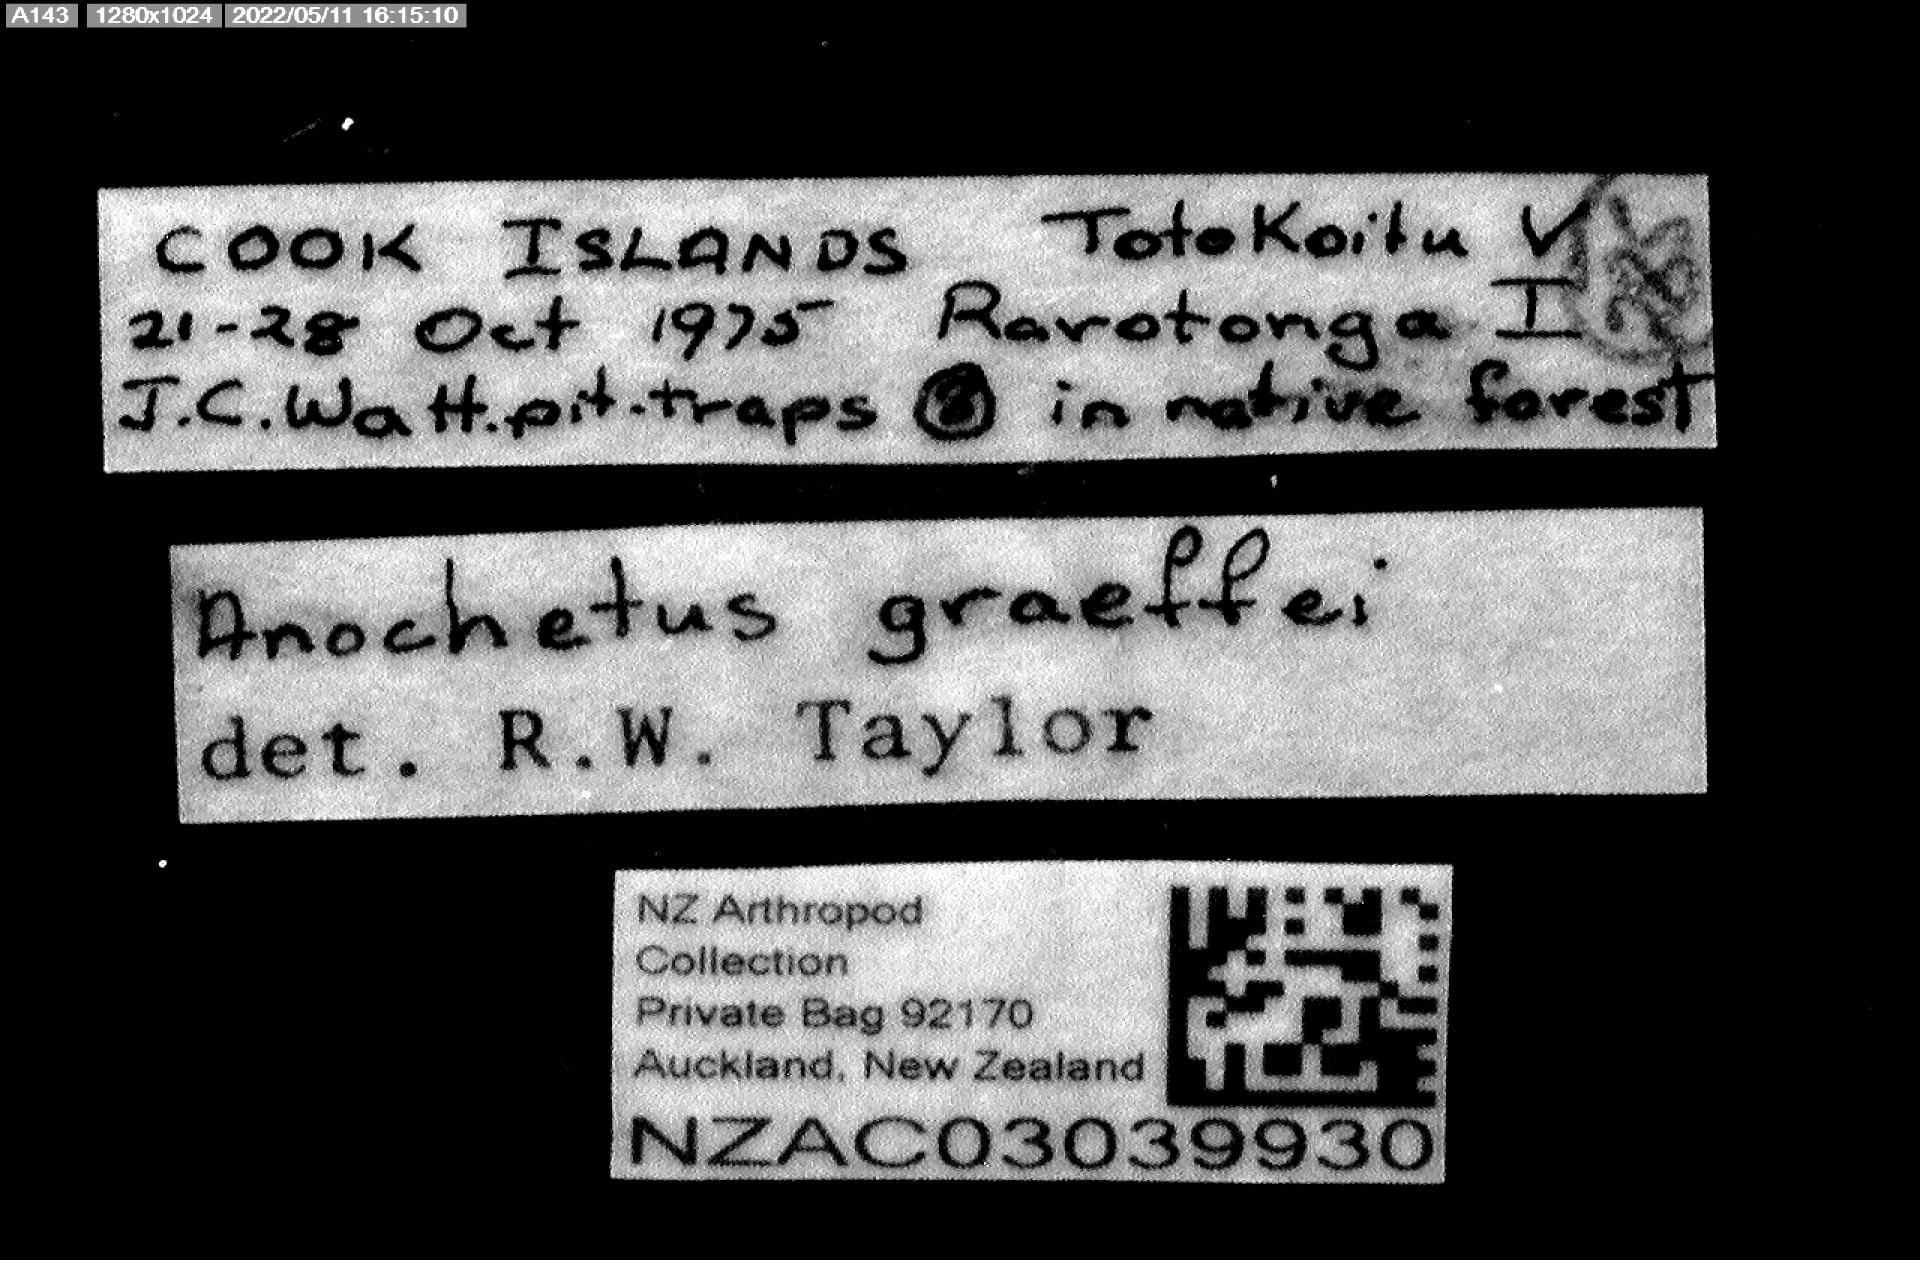 A143 1280x1024 2022/05/11 16:15:10
COOK ISLANDS Totokoitu V
21-28 Oct 1975 Rarotonga I
J.C.Watt.pit.traps in native forest
Anochetus graeffei
det. R.W. Taylor
NZ Arthropod
Collection
Private Bag 92170
Auckland, New Zealand
NZAC03039930